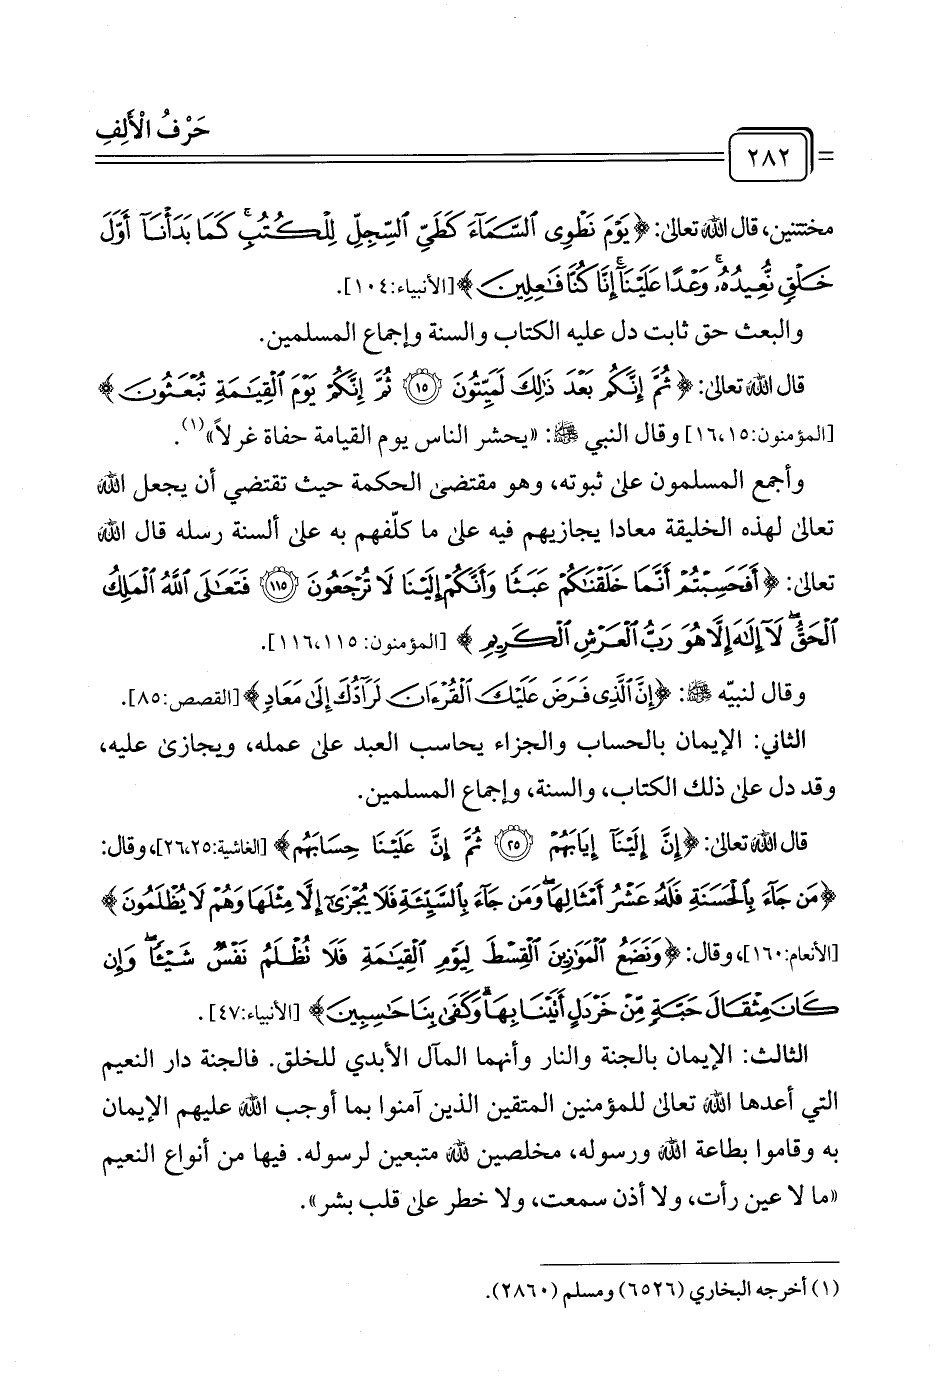 حَرْفُ الْأَلِفِ
٢٨٢
مختتنين، قال الله تعالى: ﴿يَوْمَ نَطْوِي السَّمَآءَ كَطَيِّ السِّجِلِّ لِلْكُتُبِ ۚ كَمَا بَدَأْنَآ أَوَّلَ
خَلْقٍ نُّعِيدُهُۥ ۚ وَعْدًا عَلَيْنَآ ۚ إِنَّا كُنَّا فَٰعِلِينَ﴾ [الأنبياء:١٠٤].
والبعث حق ثابت دل عليه الكتاب والسنة وإجماع المسلمين.
قال الله تعالى: ﴿ثُمَّ إِنَّكُم بَعْدَ ذَٰلِكَ لَمَيِّتُونَ ١٥ ثُمَّ إِنَّكُمْ يَوْمَ الْقِيَٰمَةِ تُبْعَثُونَ﴾
[المؤمنون:١٦،١٥] وقال النبي ﷺ: «يحشر الناس يوم القيامة حفاة غرلاً»(١).
وأجمع المسلمون على ثبوته، وهو مقتضى الحكمة حيث تقتضي أن يجعل الله
تعالى لهذه الخليقة معادا يجازيهم فيه على ما كلّفهم به على ألسنة رسله قال الله
تعالى: ﴿أَفَحَسِبْتُمْ أَنَّمَا خَلَقْنَٰكُمْ عَبَثًا وَأَنَّكُمْ إِلَيْنَا لَا تُرْجَعُونَ ١١٥ فَتَعَٰلَى اللَّهُ الْمَلِكُ
الْحَقُّ ۖ لَآ إِلَٰهَ إِلَّا هُوَ رَبُّ الْعَرْشِ الْكَرِيمِ﴾ [المؤمنون: ١١٦،١١٥].
وقال لنبيّه ﷺ: ﴿إِنَّ الَّذِي فَرَضَ عَلَيْكَ الْقُرْءَانَ لَرَآدُّكَ إِلَىٰ مَعَادٍ﴾ [القصص:٨٥].
الثاني: الإيمان بالحساب والجزاء يحاسب العبد على عمله، ويجازى عليه،
وقد دل على ذلك الكتاب، والسنة، وإجماع المسلمين.
قال الله تعالى: ﴿إِنَّ إِلَيْنَآ إِيَابَهُمْ ٢٥ ثُمَّ إِنَّ عَلَيْنَا حِسَابَهُم﴾ [الغاشية:٢٦،٢٥]، وقال:
﴿مَن جَآءَ بِالْحَسَنَةِ فَلَهُۥ عَشْرُ أَمْثَالِهَا ۖ وَمَن جَآءَ بِالسَّيِّئَةِ فَلَا يُجْزَىٰٓ إِلَّا مِثْلَهَا وَهُمْ لَا يُظْلَمُونَ﴾
[الأنعام:١٦٠]، وقال: ﴿وَنَضَعُ الْمَوَٰزِينَ الْقِسْطَ لِيَوْمِ الْقِيَٰمَةِ فَلَا تُظْلَمُ نَفْسٌ شَيْـًٔا ۖ وَإِن
كَانَ مِثْقَالَ حَبَّةٍ مِّنْ خَرْدَلٍ أَتَيْنَا بِهَا ۗ وَكَفَىٰ بِنَا حَٰسِبِينَ﴾ [الأنبياء:٤٧].
الثالث: الإيمان بالجنة والنار وأنهما المآل الأبدي للخلق. فالجنة دار النعيم
التي أعدها الله تعالى للمؤمنين المتقين الذين آمنوا بما أوجب الله عليهم الإيمان
به وقاموا بطاعة الله ورسوله، مخلصين لله متبعين لرسوله. فيها من أنواع النعيم
«ما لا عين رأت، ولا أذن سمعت، ولا خطر على قلب بشر».
(١) أخرجه البخاري (٦٥٢٦) ومسلم (٢٨٦٠).